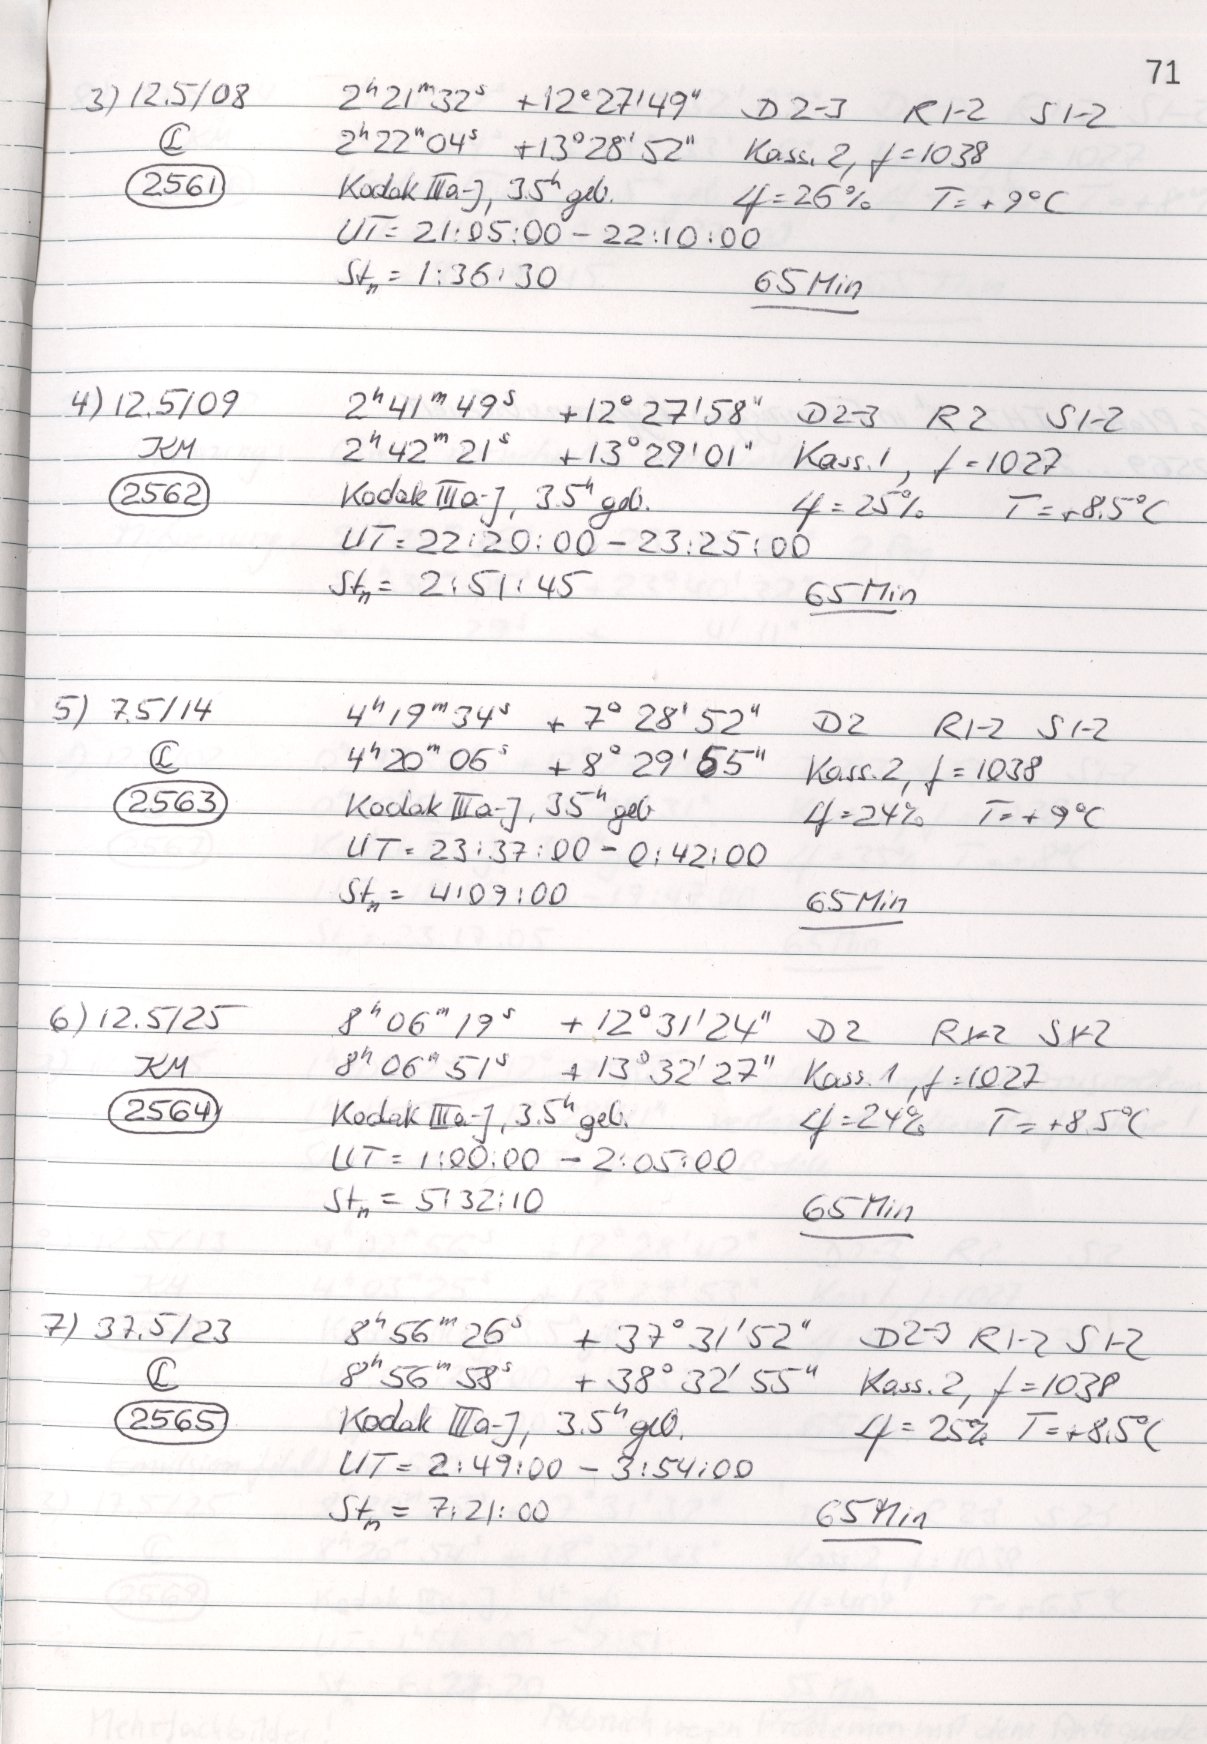 71
3) 12.5/08 2ʰ21ᵐ32ˢ +12°27'49" D2-3 R1-2 S1-2
CL 2ʰ22ᵐ04ˢ +13°28'52" Kass. 2, f=1038
2561 Kodak IIIa-J, 3.5ʰ geb. φ=26% T=+9°C
UT=21:05:00-22:10:00
Stₙ=1:36:30 65 Min
4) 12.5/09 2ʰ41ᵐ49ˢ +12°27'58" D2-3 R2 S1-2
KM 2ʰ42ᵐ21ˢ +13°29'01" Kass. 1, f=1027
2562 Kodak IIIa-J, 3.5ʰ geb. φ=25% T=+8.5°C
UT=22:20:00-23:25:00
Stₙ=2:51:45 65 Min
5) 7.5/14 4ʰ19ᵐ34ˢ +7°28'52" D2 R1-2 S1-2
CL 4ʰ20ᵐ06ˢ +8°29'55" Kass. 2, f=1038
2563 Kodak IIIa-J, 3.5ʰ geb φ=24% T=+9°C
UT=23:37:00-0:42:00
Stₙ=4:09:00 65 Min
6) 12.5/25 8ʰ06ᵐ19ˢ +12°31'24" D2 R1-2 S1-2
KM 8ʰ06ᵐ51ˢ +13°32'27" Kass. 1, f=1027
2564 Kodak IIIa-J, 3.5ʰ geb. φ=24% T=+8.5°C
UT=1:00:00-2:05:00
Stₙ=5:32:10 65 Min
7) 37.5/23 8ʰ56ᵐ26ˢ +37°31'52" D2-3 R1-2 S1-2
CL 8ʰ56ᵐ58ˢ +38°32'55" Kass. 2, f=1038
2565 Kodak IIIa-J, 3.5ʰ geb. φ=25% T=+8.5°C
UT=2:49:00-3:54:00
Stₙ=7:21:00 65 Min